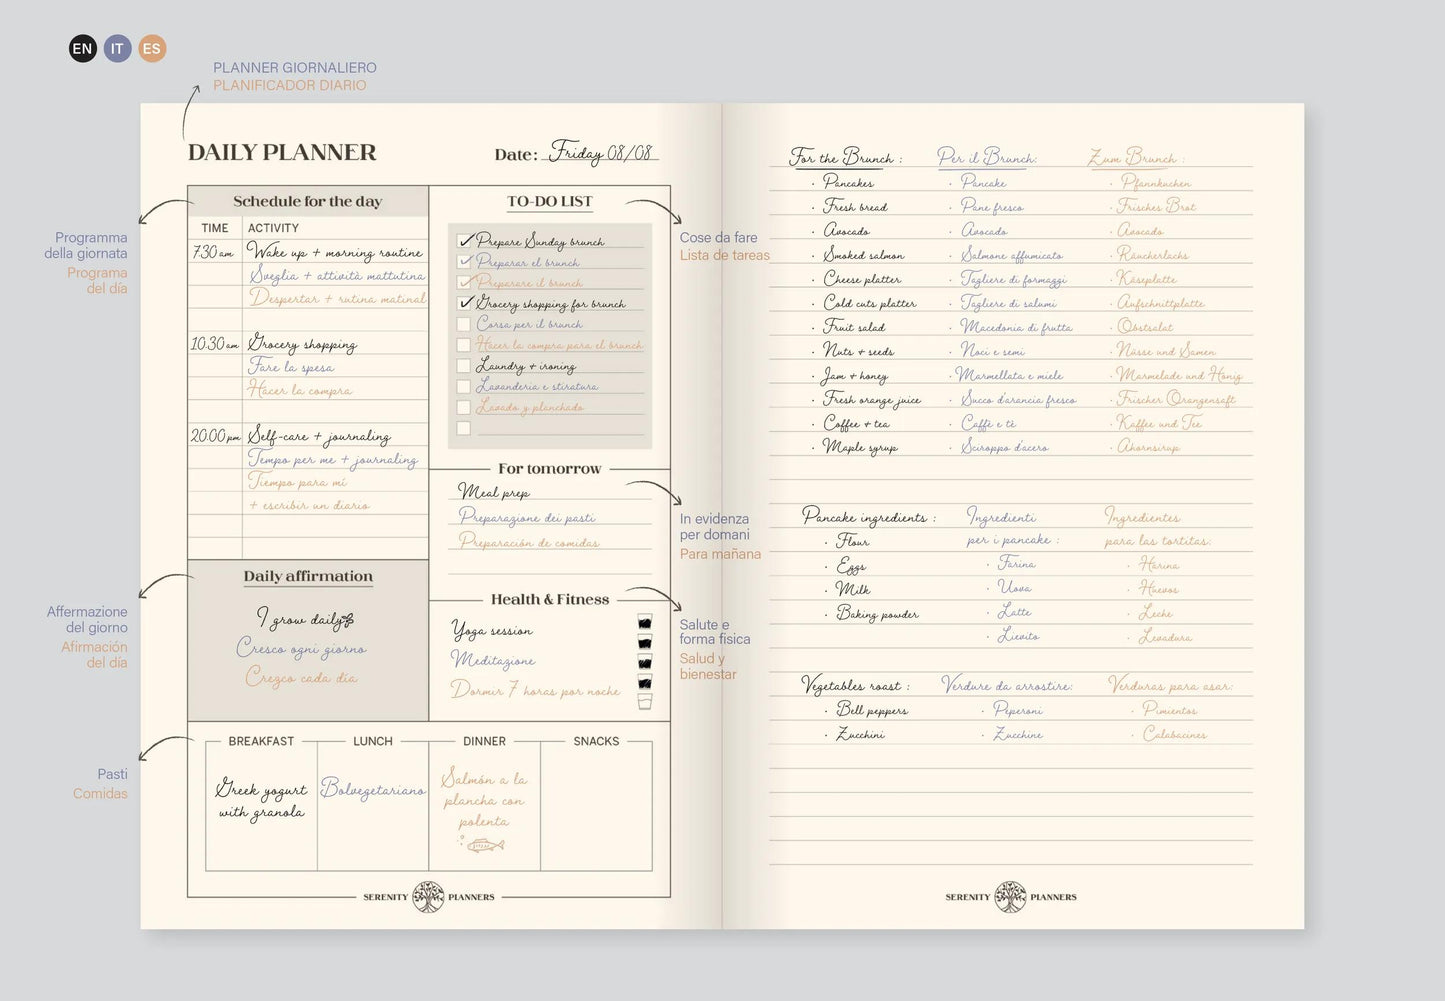 EN IT ES
PLANNER GIORNALIERO
PLANIFICADOR DIARIO
DAILY PLANNER
Date: Friday 08/08
Programma
della giornata
Programa
del día
Schedule for the day
TIME ACTIVITY
7.30 am Wake up + morning routine
Sveglia + attività mattutina
Despertar + rutina matinal
10.30 am Grocery shopping
Fare la spesa
Hacer la compra
20.00 pm Self-care + journaling
Tempo per me + journaling
Tiempo para mí
+ escribir un diario
TO-DO LIST
Prepare Sunday brunch
Preparar el brunch
Preparare il brunch
Grocery shopping for brunch
Corsa per il brunch
Hacer la compra para el brunch
Laundry + ironing
Lavanderia e stiratura
Lavado y planchado
Cose da fare
Lista de tareas
For tomorrow
Meal prep
Preparazione dei pasti
Preparación de comidas
In evidenza
per domani
Para mañana
Affermazione
del giorno
Afirmación
del día
Daily affirmation
I grow daily
Cresco ogni giorno
Crezco cada día
Health & Fitness
Yoga session
Meditazione
Dormir 7 horas por noche
Salute e
forma fisica
Salud y
bienestar
Pasti
Comidas
BREAKFAST LUNCH DINNER SNACKS
Greek yogurt
with granola
Bolvegetariano
Salmón a la
plancha con
polenta
SERENITY PLANNERS
For the Brunch : Per il Brunch: Zum Brunch :
· Pancakes · Pancake · Pfannkuchen
· Fresh bread · Pane fresco · Frisches Brot
· Avocado · Avocado · Avocado
· Smoked salmon · Salmone affumicato · Räucherlachs
· Cheese platter · Tagliere di formaggi · Käseplatte
· Cold cuts platter · Tagliere di salumi · Aufschnittplatte
· Fruit salad · Macedonia di frutta · Obstsalat
· Nuts + seeds · Noci e semi · Nüsse und Samen
· Jam + honey · Marmellata e miele · Marmelade und Honig
· Fresh orange juice · Succo d'arancia fresco · Frischer Orangensaft
· Coffee + tea · Caffè e tè · Kaffee und Tee
· Maple syrup · Sciroppo d'acero · Ahornsirup
Pancake ingredients : Ingredienti Ingredientes
· Flour per i pancake : para las tortitas:
· Eggs · Farina · Harina
· Milk · Uova · Huevos
· Baking powder · Latte · Leche
· Lievito · Levadura
Vegetables roast : Verdure da arrostire: Verduras para asar:
· Bell peppers · Peperoni · Pimientos
· Zucchini · Zucchine · Calabacines
SERENITY PLANNERS